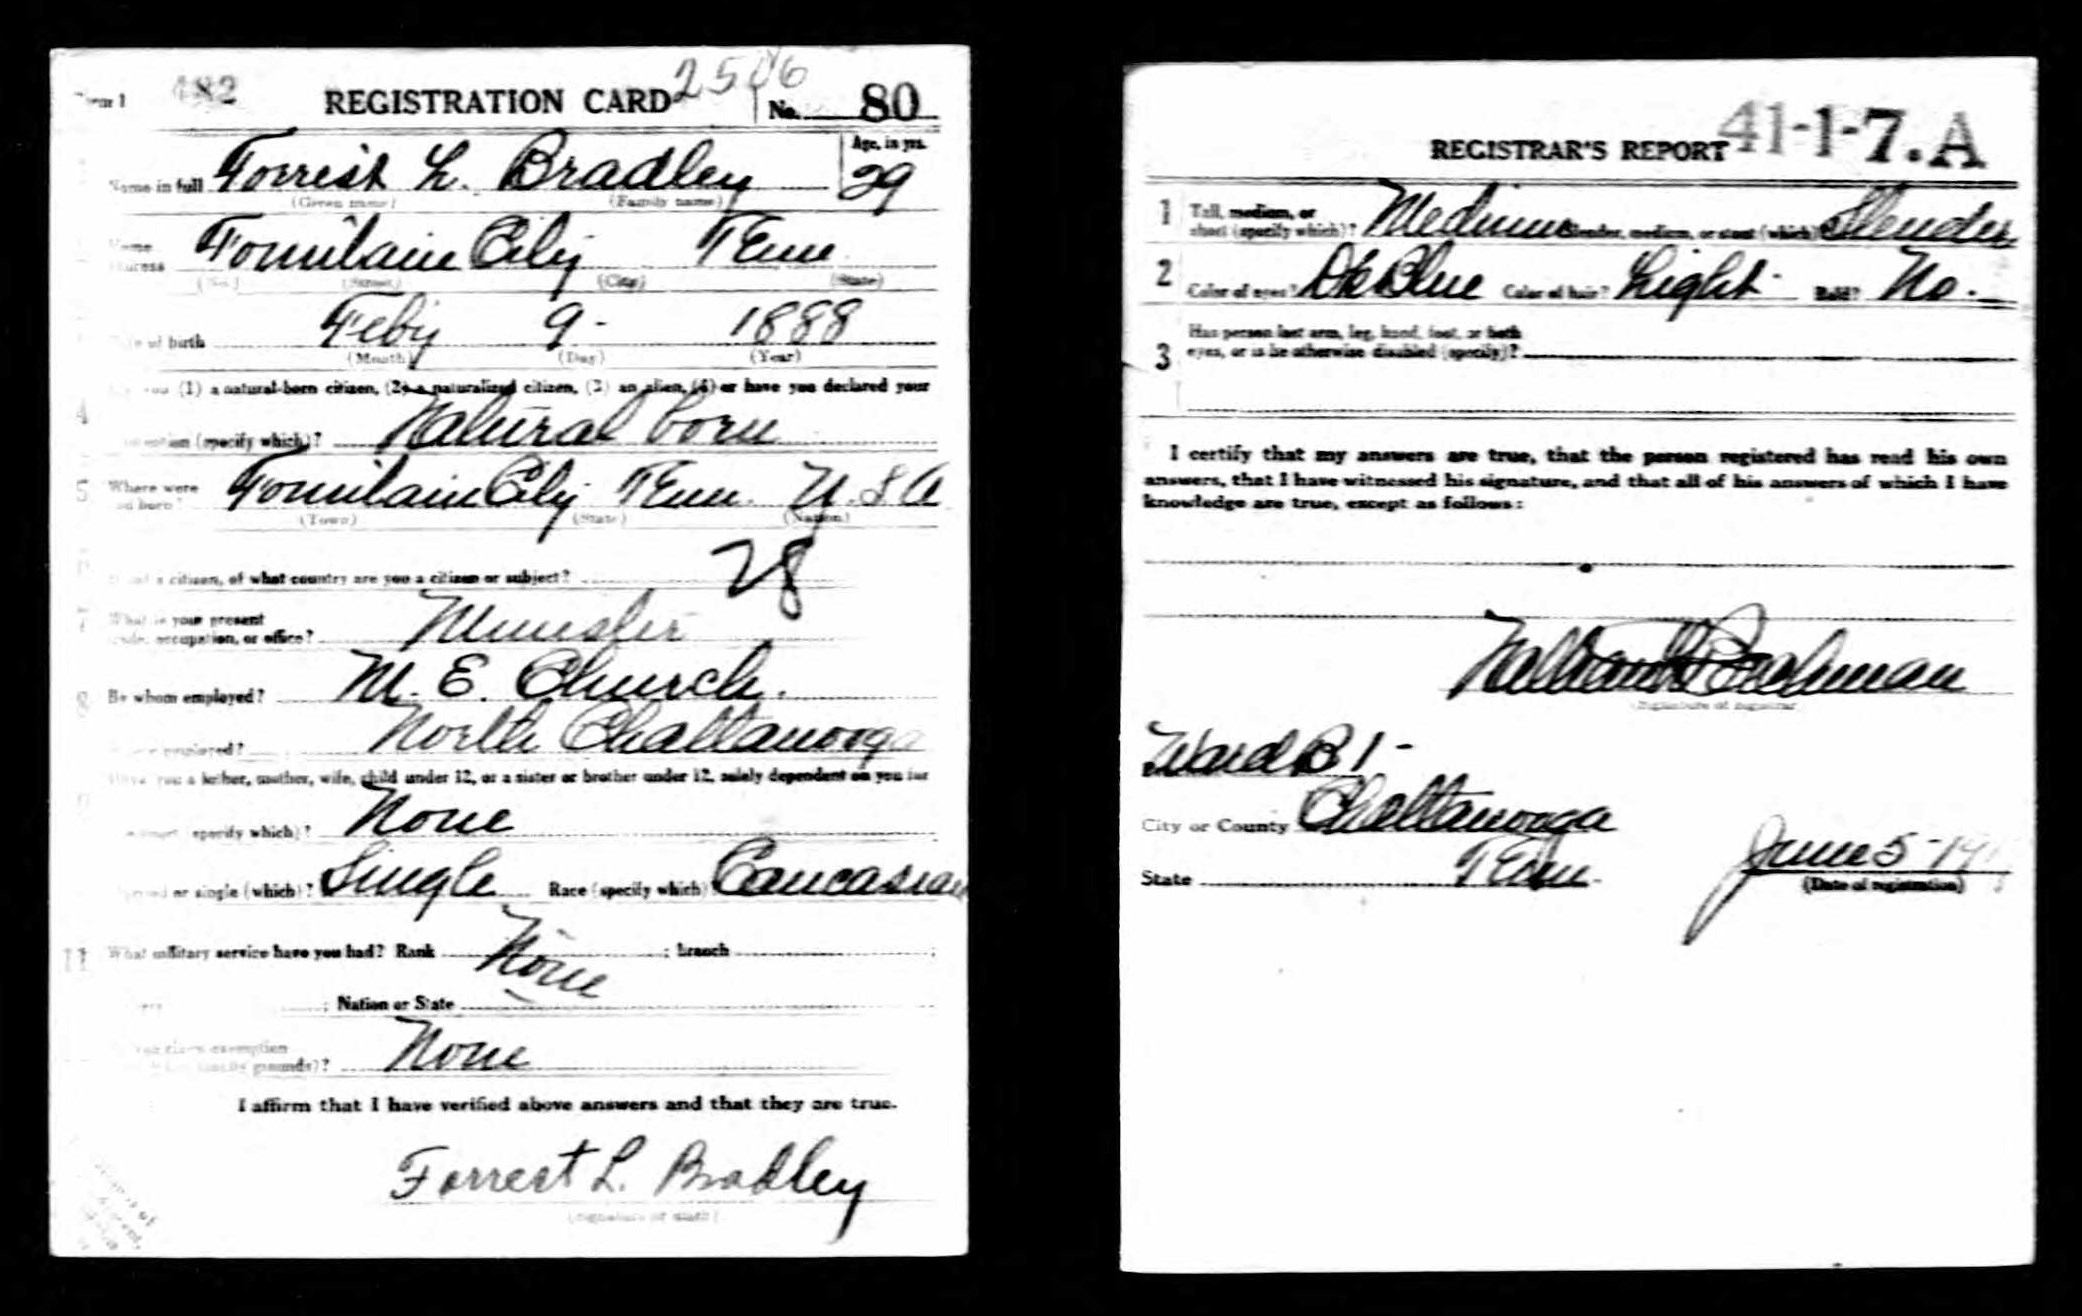 482
REGISTRATION CARD No. 80
Name in full Forrest L. Bradley Age, in yrs. 29
(Given name) (Family name)
Fountain City Tenn
(Street) (City) (State)
of birth Feby 9- 1888
(Month) (Day) (Year)
(1) a natural-born citizen, (2) a naturalized citizen, (3) an alien, (4) or have you declared your
4
(specify which)? Natural born
5 Where were born? Fountain City Tenn. U. S A
(Town) (State) (Nation)
28
a citizen, of what country are you a citizen or subject?
7 What is your present
occupation, or office? Minister
8 By whom employed? M. E. Church.
employed? North Chattanooga
you a father, mother, wife, child under 12, or a sister or brother under 12, solely dependent on you for
specify which)? None
or single (which)? Single Race (specify which) Caucasian
11 What military service have you had? Rank None ; branch ;
; Nation or State
exemption
grounds)? None
I affirm that I have verified above answers and that they are true.
Forrest L. Bradley
REGISTRAR'S REPORT 41-1-7.A
1 Tall, medium, or
short (specify which)? Medium Slender, medium, or stout (which) Slender
2 Color of eyes? Dk Blue Color of hair? Light Bald? No.
3 Has person lost arm, leg, hand, foot, or both
eyes, or is he otherwise disabled (specify)?
I certify that my answers are true, that the person registered has read his own
answers, that I have witnessed his signature, and that all of his answers of which I have
knowledge are true, except as follows:
(Signature of registrar
Ward B 1-
City or County Chattanooga
State Tenn. June 5-
(Date of registration)